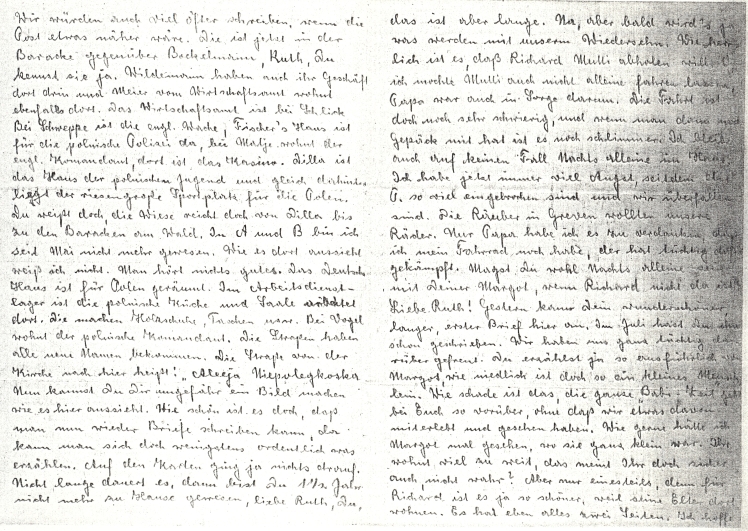 Wir würden auch viel öfter schreiben, wenn die
Post etwas näher wäre. Die ist jetzt in der
Baracke gegenüber Bockelmann, Ruth, Du
kennst sie ja. Wildemann haben auch ihr Geschäft
dort drin und Meier vom Wirtschaftsamt wohnt
ebenfalls dort. Das Wirtschaftsamt ist bei Schlick
Bei Schweppe ist die engl. Wache, Fischer's Haus ist
für die polnische Polizei da, bei Matje wohnt der
engl. Komandant, dort ist das Kasino. Zilla ist
das Haus der polnischen Jugend und gleich dahinter
liegt der riesengroße Sportplatz für die Polen.
Du weißt doch, die Wiese reicht doch von Zilla bis
zu den Baracken am Wald. In A und B bin ich
seit Mai nicht mehr gewesen. Wie es dort aussieht
weiß ich nicht. Man hört nichts gutes. Das Deutsche
Haus ist für Polen geräumt. Im Arbeitsdienst-
lager ist die polnische Küche und Saale arbeitet
dort. Die machen Holzschuhe, Taschen usw. Bei Vogel
wohnt der polnische Komandant. Die Straßen haben
alle neue Namen bekommen. Die Straße von der
Kirche nach hier heißt! „Aleeja Niepoleglkoska
Nun kannst Du Dir ungefähr ein Bild machen
wie es hier aussieht. Wie schön ist es doch, daß
man nun wieder Briefe schreiben kann, da
kann man sich doch wenigstens ordentlich was
erzählen. Auf den Karten ging ja nichts drauf.
Nicht lange dauert es, dann bist Du 1½ Jahr
nicht mehr zu Hause gewesen, liebe Ruth, Du,
das ist aber lange. Na, aber bald wird's ja
was werden mit unserm Wiedersehn. Wie herr-
lich ist es, daß Richard Mutti abholen will
ich möchte Mutti auch nicht alleine fahren lassen
Papa war auch in Sorge darum. Die Fahrt ist
doch noch sehr schwierig, und wenn man dann noch
Gepäck mit hat ist es noch schlimmer. Ich bleibe
auch auf keinen Fall Nachts alleine im Haus.
Ich habe jetzt immer viel Angst, seitdem die
P. so viel eingebrochen sind und wir überfallen
sind. Die Räuber in Greven wollten unsere
Räder. Nur Papa habe ich es zu verdanken, daß
ich mein Fahrrad noch habe, der hat tüchtig
gekämpft. Magst Du wohl Nachts alleine sein
mit Deiner Margot, wenn Richard nicht da ist?
Liebe Ruth! Gestern kam Dein wunderschöner
langer, erster Brief hier an. Im Juli hast Du ihn
schon geschrieben. Wir haben uns ganz tüchtig da-
rüber gefreut. Du erzählst ja so ausführlich von
Margot, wie niedlich ist doch so ein kleines Mensch-
lein. Wie schade ist das, die ganze Baby-Zeit geht
bei Euch so vorüber, ohne daß wir etwas davon
miterlebt und gesehen haben. Wie gerne hätte ich
Margot mal gesehen, wo sie ganz klein war. Ihr
wohnt viel zu weit, das meint Ihr doch sicher
auch nicht wahr? Aber nur einesteils, denn für
Richard ist es ja so schöner, weil seine Eltern dort
wohnen. Es hat eben alles zwei Seiten. Ich hoffe